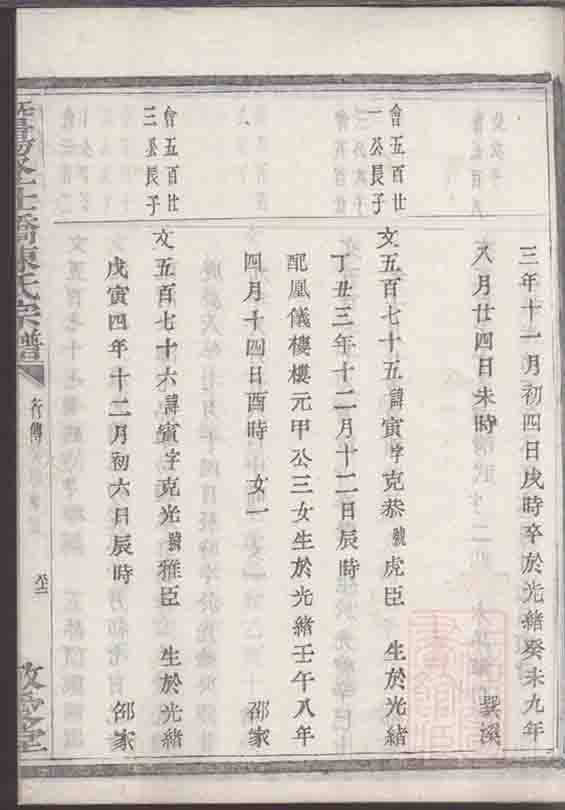 三年十一月初四日戌時卒於光緒癸未九年
八月廿四日未時 巽溪
會五百廿
一公長子
文五百七十五諱寅字克恭號虎臣 生於光緒
丁丑三年十二月十二日辰時
配鳳儀樓樓元甲公三女生於光緒壬午八年
四月十四日酉時 女一 邵家
會五百廿
三公長子
文五百七十六諱賓字克光號雅臣 生於光緒
戊寅四年十二月初六日辰時 邵家
橋陳氏宗譜
行傳